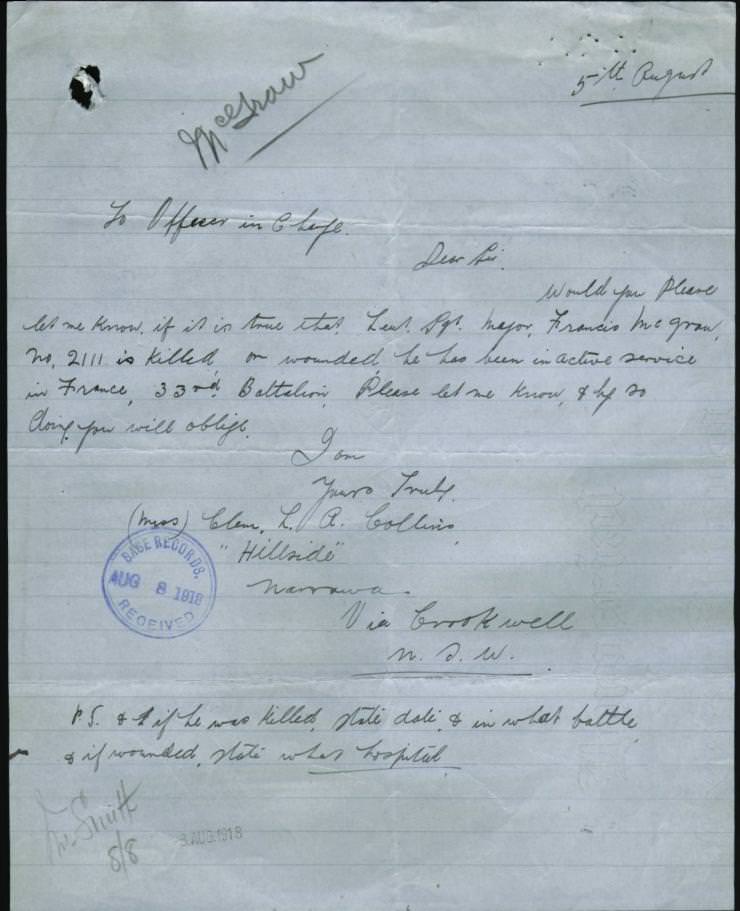 5th August
McGraw
To Officer in Charge.
Dear Sir.
Would you Please
let me know, if it is true that, Lieut. Sgt. Major, Francis McGraw,
No, 2111 is killed, or wounded, he has been in active service
in France, 33rd Battalion, Please let me know, & by so
doing you will oblige.
I am
Yours Truly.
(Miss) Clem, L. A. Collins,
"Hillside"
Narrawa.
Via Crookwell
N. S. W.
BASE RECORDS.
AUG 8 1918
RECEIVED
P.S. & if he was killed, state date, & in what battle,
& if wounded, state what hospital
Smith
8/8
8 AUG 1918